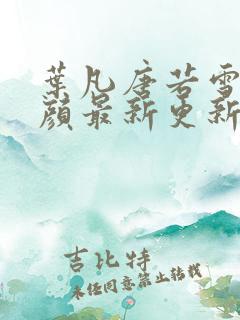 葉凡唐若雪
顏最新更新
吉比特
未经同意禁止转载